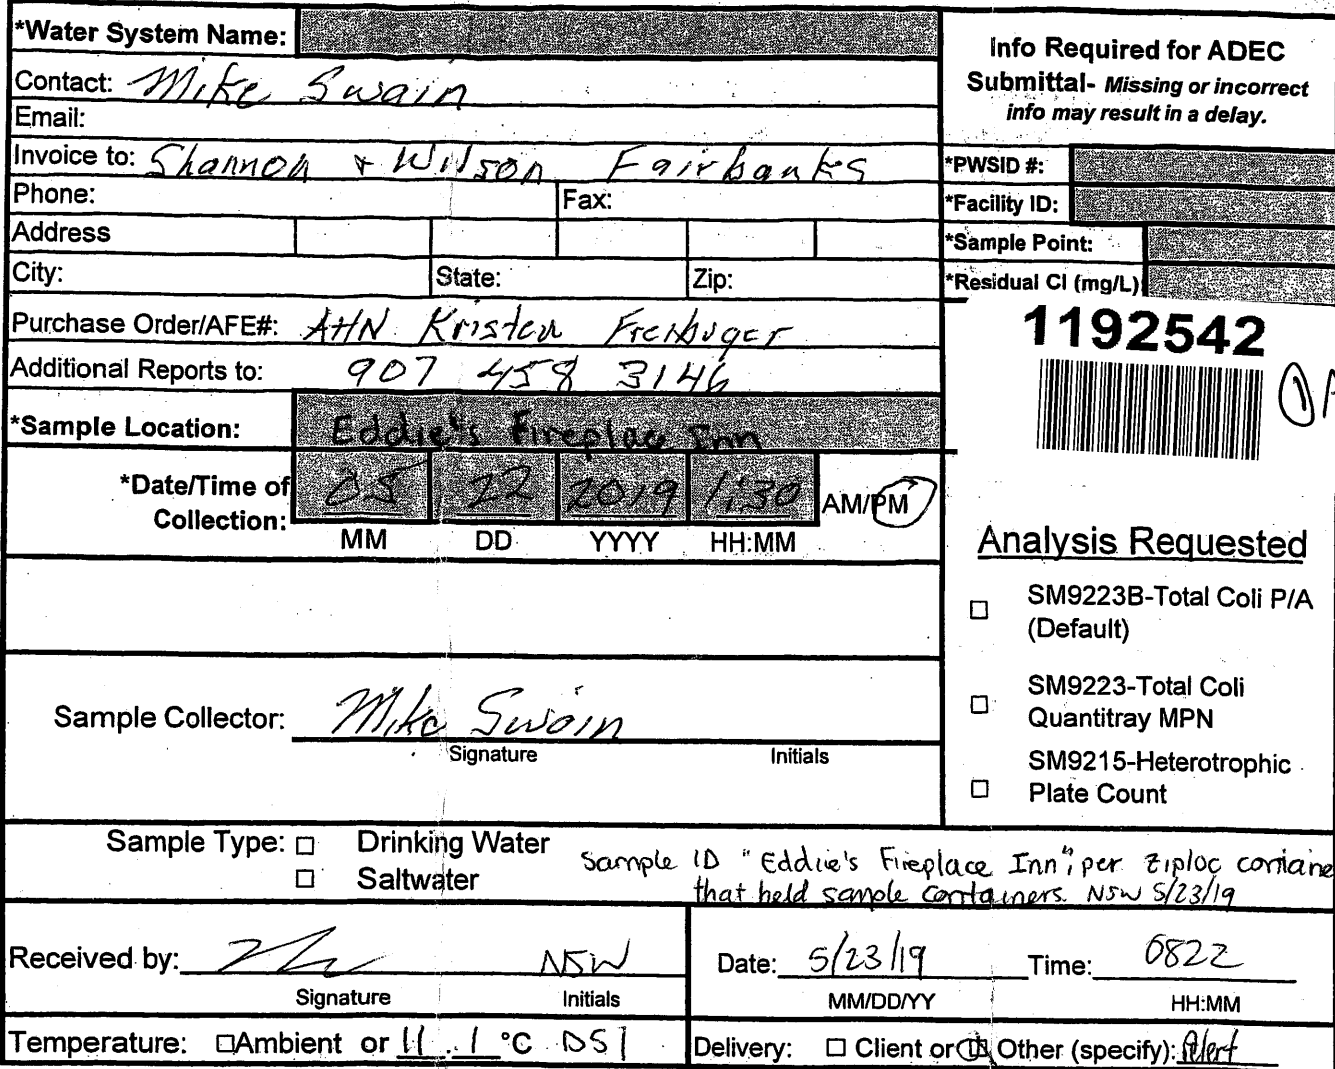 *Water System Name:
Contact: Mike Swain
Email:
Invoice to: Shannon + Wilson Fairbanks
Phone: Fax:
Address
City: State: Zip:
Purchase Order/AFE#: Attn Kristen Freiburger
Additional Reports to: 907 458 3146
*Sample Location: Eddie's Fireplace Inn
*Date/Time of
Collection: 05 22 2019 1:30 AM/PM
MM DD YYYY HH:MM
Sample Collector: Mike Swain
Signature Initials
Info Required for ADEC
Submittal- Missing or incorrect
info may result in a delay.
*PWSID #:
*Facility ID:
*Sample Point:
*Residual Cl (mg/L)
1192542
Analysis Requested
☐ SM9223B-Total Coli P/A
(Default)
☐ SM9223-Total Coli
Quantitray MPN
☐ SM9215-Heterotrophic
Plate Count
Sample Type: ☐ Drinking Water
☐ Saltwater
Sample ID "Eddie's Fireplace Inn", per Ziploc containe
that held sample containers. NSW 5/23/19
Received by: NSW
Signature Initials
Date: 5/23/19 Time: 0822
MM/DD/YY HH:MM
Temperature: ☐Ambient or 11.1 °C DS1
Delivery: ☐ Client or ☐ Other (specify): Alert